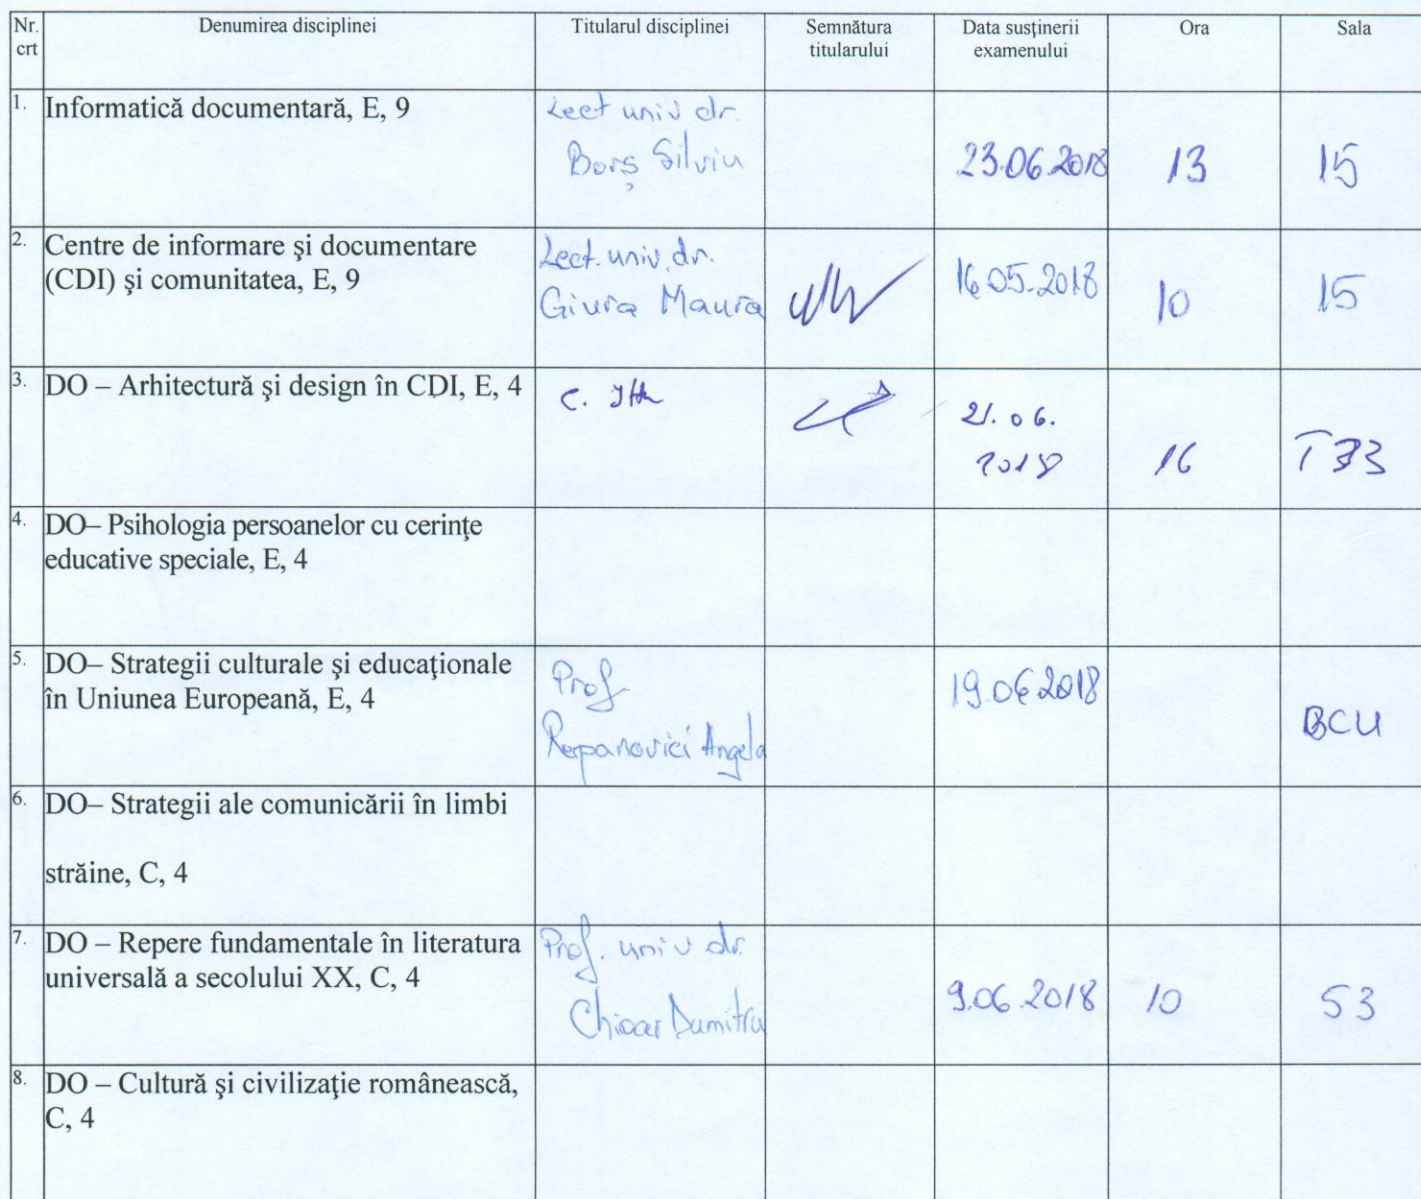 Nr. crt
Denumirea disciplinei
Titularul disciplinei
Semnătura titularului
Data susţinerii examenului
Ora
Sala
1.
Informatică documentară, E, 9
Lect univ dr.
Borș Silviu
23.06.2018
13
15
2.
Centre de informare şi documentare
(CDI) şi comunitatea, E, 9
Lect. univ. dr.
Giura Maura
16.05.2018
10
15
3.
DO – Arhitectură şi design în CDI, E, 4
C.
21.06.
2018
16
T33
4.
DO– Psihologia persoanelor cu cerinţe
educative speciale, E, 4
5.
DO– Strategii culturale şi educaţionale
în Uniunea Europeană, E, 4
Prof
Repanovici Angela
19.06.2018
BCU
6.
DO– Strategii ale comunicării în limbi
străine, C, 4
7.
DO – Repere fundamentale în literatura
universală a secolului XX, C, 4
Prof. univ dr.
Chioar Dumitru
9.06.2018
10
53
8.
DO – Cultură şi civilizaţie românească,
C, 4